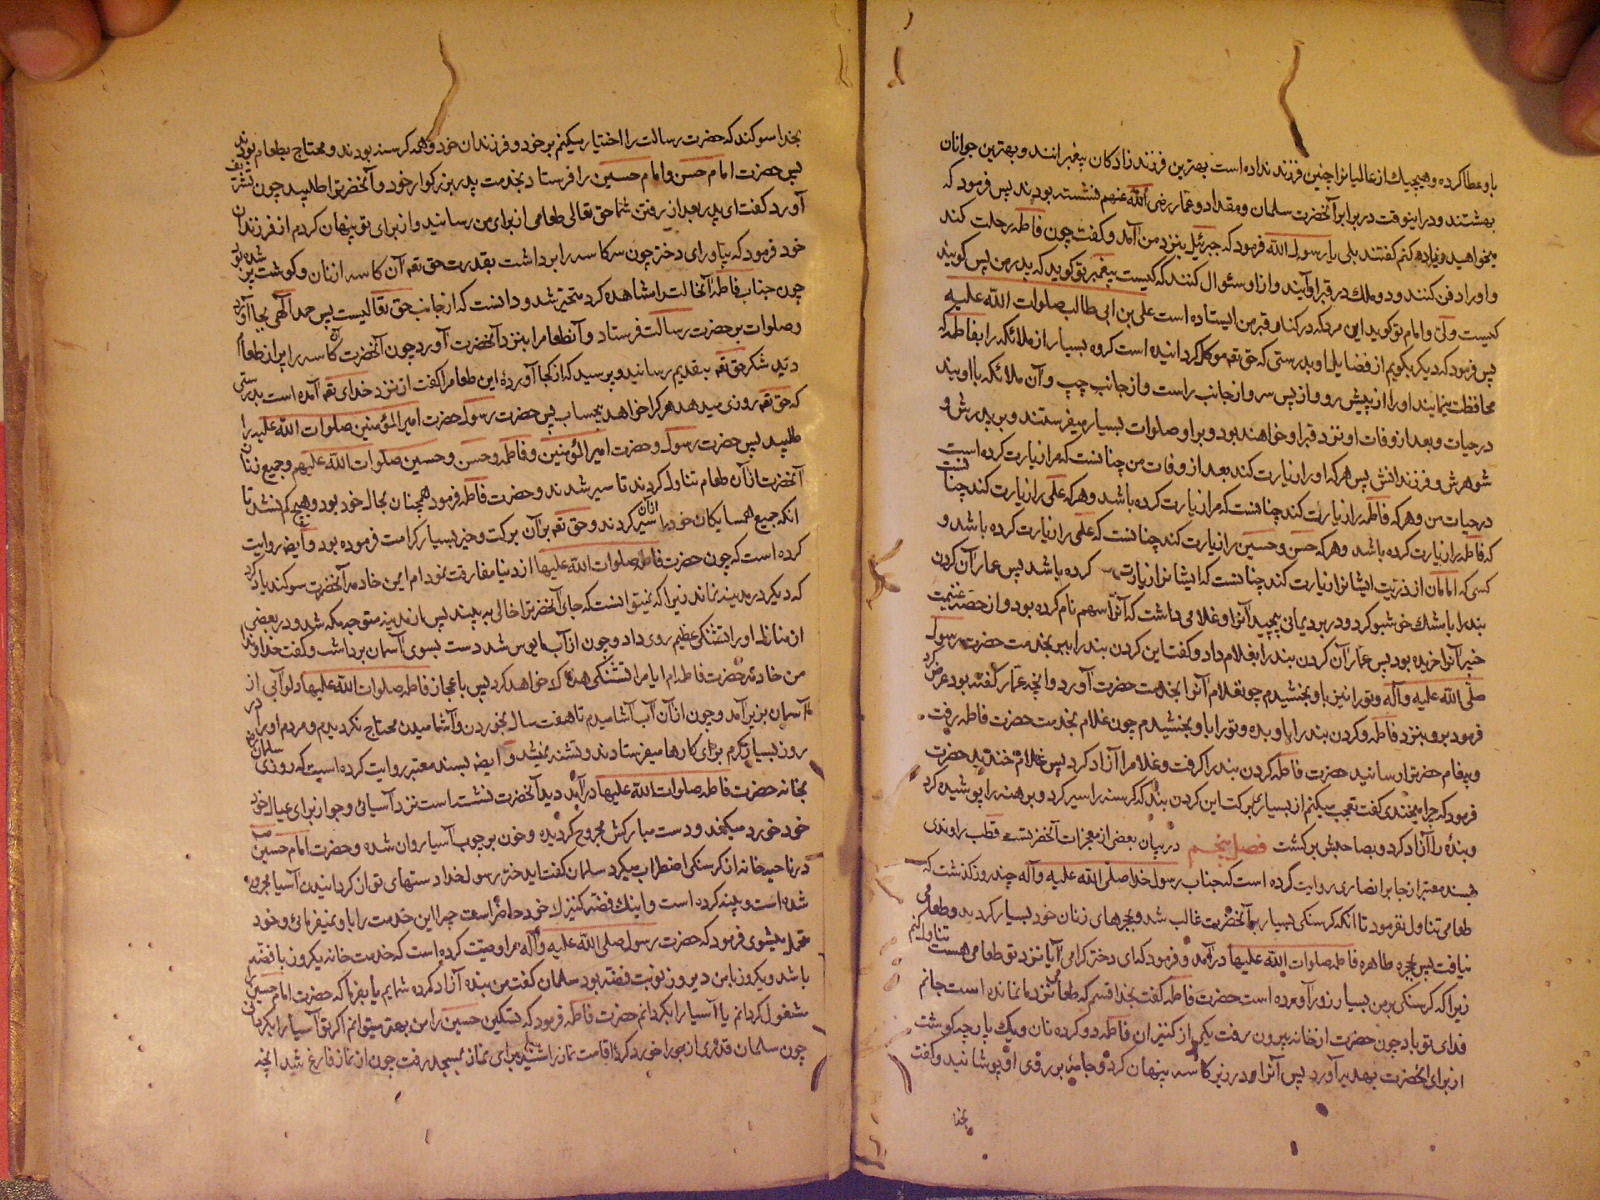 باو عطا کرده و هیچیک از عالمیانرا چنین فرزند نداده است بهترین فرزند زادکان پیغمبرانند و بهترین جوانان
بهشتند و در اینوقت در برابر آنحضرت سلمان و مقداد و عمار رضی الله عنهم نشسته بودند پس فرمود که
میخواهید زیاده کنم کفتند بلی یا رسول الله فرمود که جبرئیل بنزد من آمد و کفت چون فاطمه رحلت کند
و او را دفن کنند دو ملک در قبر او آیند و از او سئوال کنند که کیست پیغمبر تو کوید که پدر من پس کویند
کیست ولی و امام تو کوید این مرد که در کنار قبر من ایستاده است علی بن ابی طالب صلوات الله علیه
پس فرمود که دیکر بکویم از فضایل او بدرستی که حق تعه موکل کردانیده است کروه بسیار از ملائکه را بفاطمه که
محافظت مینمایند او را از پیش رو و از پس سر و از جانب راست و از جانب چپ و آن ملائکه با اویند
در حیات و بعد از وفات او نزد قبر او خواهند بود و بر او صلوات بسیار میفرستند و بر پدرش و
شوهرش و فرزندانش پس هر که او را زیارت کند بعد از وفات من چنانست که مرا زیارت کرده است
در حیات من و هر که فاطمه را زیارت کند چنانست که مرا زیارت کرده باشد و هر که علی را زیارت کند چنانست
که فاطمه را زیارت کرده باشد و هر که حسن و حسین را زیارت کند چنانست که علی را زیارت کرده باشد و
کسی که امامان از ذریت ایشانرا زیارت کند چنانست که ایشانرا زیارت کرده باشد پس عمار آن کردن
بند را بامشک خوشبو کرد و در برد یمانی پیچید آنرا و غلامی داشت که آنرا سهم نام کرده بود و از حصه غنیمت
خیبر آنرا خریده بود پس عمار آن کردن بند را بغلام داد و کفت این کردن بند را ببر بخدمت حضرت رسول
صلی الله علیه و آله و تو را نیز باو بخشیدم چون غلام آنرا بخدمت حضرت آورد و آنچه عمار کفته بود عرض کرد
فرمود برو بنزد فاطمه و کردن بند را باو بده و تو را باو بخشیدم چون غلام بخدمت حضرت فاطمه رفت
و پیغام حضرترا رسانید حضرت فاطمه کردن بند را کرفت و غلام را آزاد کرد پس غلام خندید حضرت
فرمود که چرا میخندی کفت تعجب میکنم از بسیاری برکت این کردن بند که کرسنه را سیر کرد و برهنه را پوشیده کرد
و بنده را آزاد کرد و بصاحبش برکشت فصل پنجم در بیان بعضی از معجزات آنحضرتست قطب راوندی
بسند معتبر از جابر انصاری روایت کرده است که جناب رسول خدا صلی الله علیه و آله چند روز کذشت که
طعامی تناول نفرمود تا آنکه کرسنکی بسیار بر آنحضرت غالب شد و بحجرهای زنان خود بسیار کردید و طعامی
نیافت پس بحجره طاهره فاطمه صلوات الله علیها درآمد و فرمود که ای دختر کرامی آیا نزد تو طعامی هست تناول کنم
زیرا که کرسنکی بر من بسیار زور آورده است حضرت فاطمه کفت بخدا قسم که طعامی نزد ما نمانده است جانم
فدای تو باد چون حضرت از خانه بیرون رفت یکی از کنیزان فاطمه دو کرده نان و یک پارچه کوشت
از برای آنحضرت بهدیه آورد پس آنرا در زیر کاسه پنهان کرد و جامهٔ بر روی او پوشانید و کفت
بخدا
بخدا سوکند که حضرت رسالت را اختیار میکنم بر خود و فرزندان خود و همه کرسنه بودند و محتاج بطعام بودند
پس حضرت امام حسن و امام حسین را فرستاد بخدمت پدر بزرکوار خود و آنحضرترا طلبید چون تشریف
آورد کفت ای پدر بعد از رفتن شما حق تعالی طعامی از برای من رسانید و از برای تو پنهان کردم از فرزندان
خود فرمود که بیاور ای دختر چون سر کاسه را برداشت بقدرت حق تعه آن کاسه از نان و کوشت پر شده بود
چون جناب فاطمه آنحالت را مشاهده کرد متحیر شد و دانست که از جانب حق تعالیست پس حمد الهی بجا آورد
و صلوات بر حضرت رسالت فرستاد و آنطعام را بنزد آنحضرت آورد چون آنحضرت کاسه را پر از طعام
دید شکر حق تعه بتقدیم رسانید و پرسید که از کجا آوردهٔ این طعام را کفت از نزد خدای تعه آمده است بدرستی
که حق تعه روزی میدهد هر کرا خواهد بیحساب پس حضرت رسول حضرت امیر المؤمنین صلوات الله علیه را
طلبید پس حضرت رسول و حضرت امیر المؤمنین و فاطمه و حسن و حسین صلوات الله علیهم و جمیع زنان
آنحضرت از آن طعام تناول کردند تا سیر شدند و حضرت فاطمه فرمود همچنان بحال خود بود و هیچ کم نشد تا
آنکه جمیع همسایکان خود را ازان سیر کردند و حق تعه بر آن برکت و خیر بسیار کرامت فرموده بود و ایضا روایت
کرده است که چون حضرت فاطمه صلوات الله علیها از دنیا مفارقت نمود ام ایمن خادمه آنحضرت سوکند یاد کرد
که دیکر در مدینه نماند زیرا که نمیتوانست که جای آنحضرترا خالی به بیند پس از مدینه متوجه مکه شد و در بعضی
از منازل او را تشنکی عظیم روی داد و چون از آب مایوس شد دست بسوی آسمان برداشت و کفت خداوندا
من خادمهٔ حضرت فاطمه ام آیا مرا تشنکی هلاک خواهد کرد پس باعجاز فاطمه صلوات الله علیها دلو آبی از
آسمان بزیر آمد و چون از آن آب آشامیدم تا هفت سال بخوردن و آشامیدن محتاج نکردیدم و مردم او را در
روز بسیار کرم برای کارها میفرستادند و تشنه نمیشد و ایضا بسند معتبر روایت کرده است که روزی سلمان
بخانه حضرت فاطمه صلوات الله علیها درآمد دید آنحضرت نشسته است نزد آسیائی و جو از برای عیال خود
خود خورد میکند و دست مبارکش مجروح کردیده و خون بر چوب آسیا روان شده و حضرت امام حسین
در ناحیه خانه از کرسنکی اضطراب میکرد سلمان کفت ای دختر رسول خدا دستهای تو از کردانیدن آسیا مجروح
شده است و پینه کرده است و اینک فضه کنیزک خود حاضر است چرا این خدمت را باو نمیفرمائی و خود
متحمل میشوی فرمود که حضرت رسول صلی الله علیه و آله مرا وصیت کرده است که خدمت خانه یکروز با فضه
باشد و یکروز با من دیروز نوبت فضه بود سلمان کفت من بنده آزاد کرده شمایم یا بفرما که حضرت امام حسین را
مشغول کردانم یا آسیا را بکردانم حضرت فاطمه فرمود که تسکین حسین را من بهتر میتوانم اکر تو آسیا را بکردانی
چون سلمان قدری از جو را خورد کرد اقامت نماز را شنید برای نماز بمسجد رفت چون از نماز فارغ شد آنچه